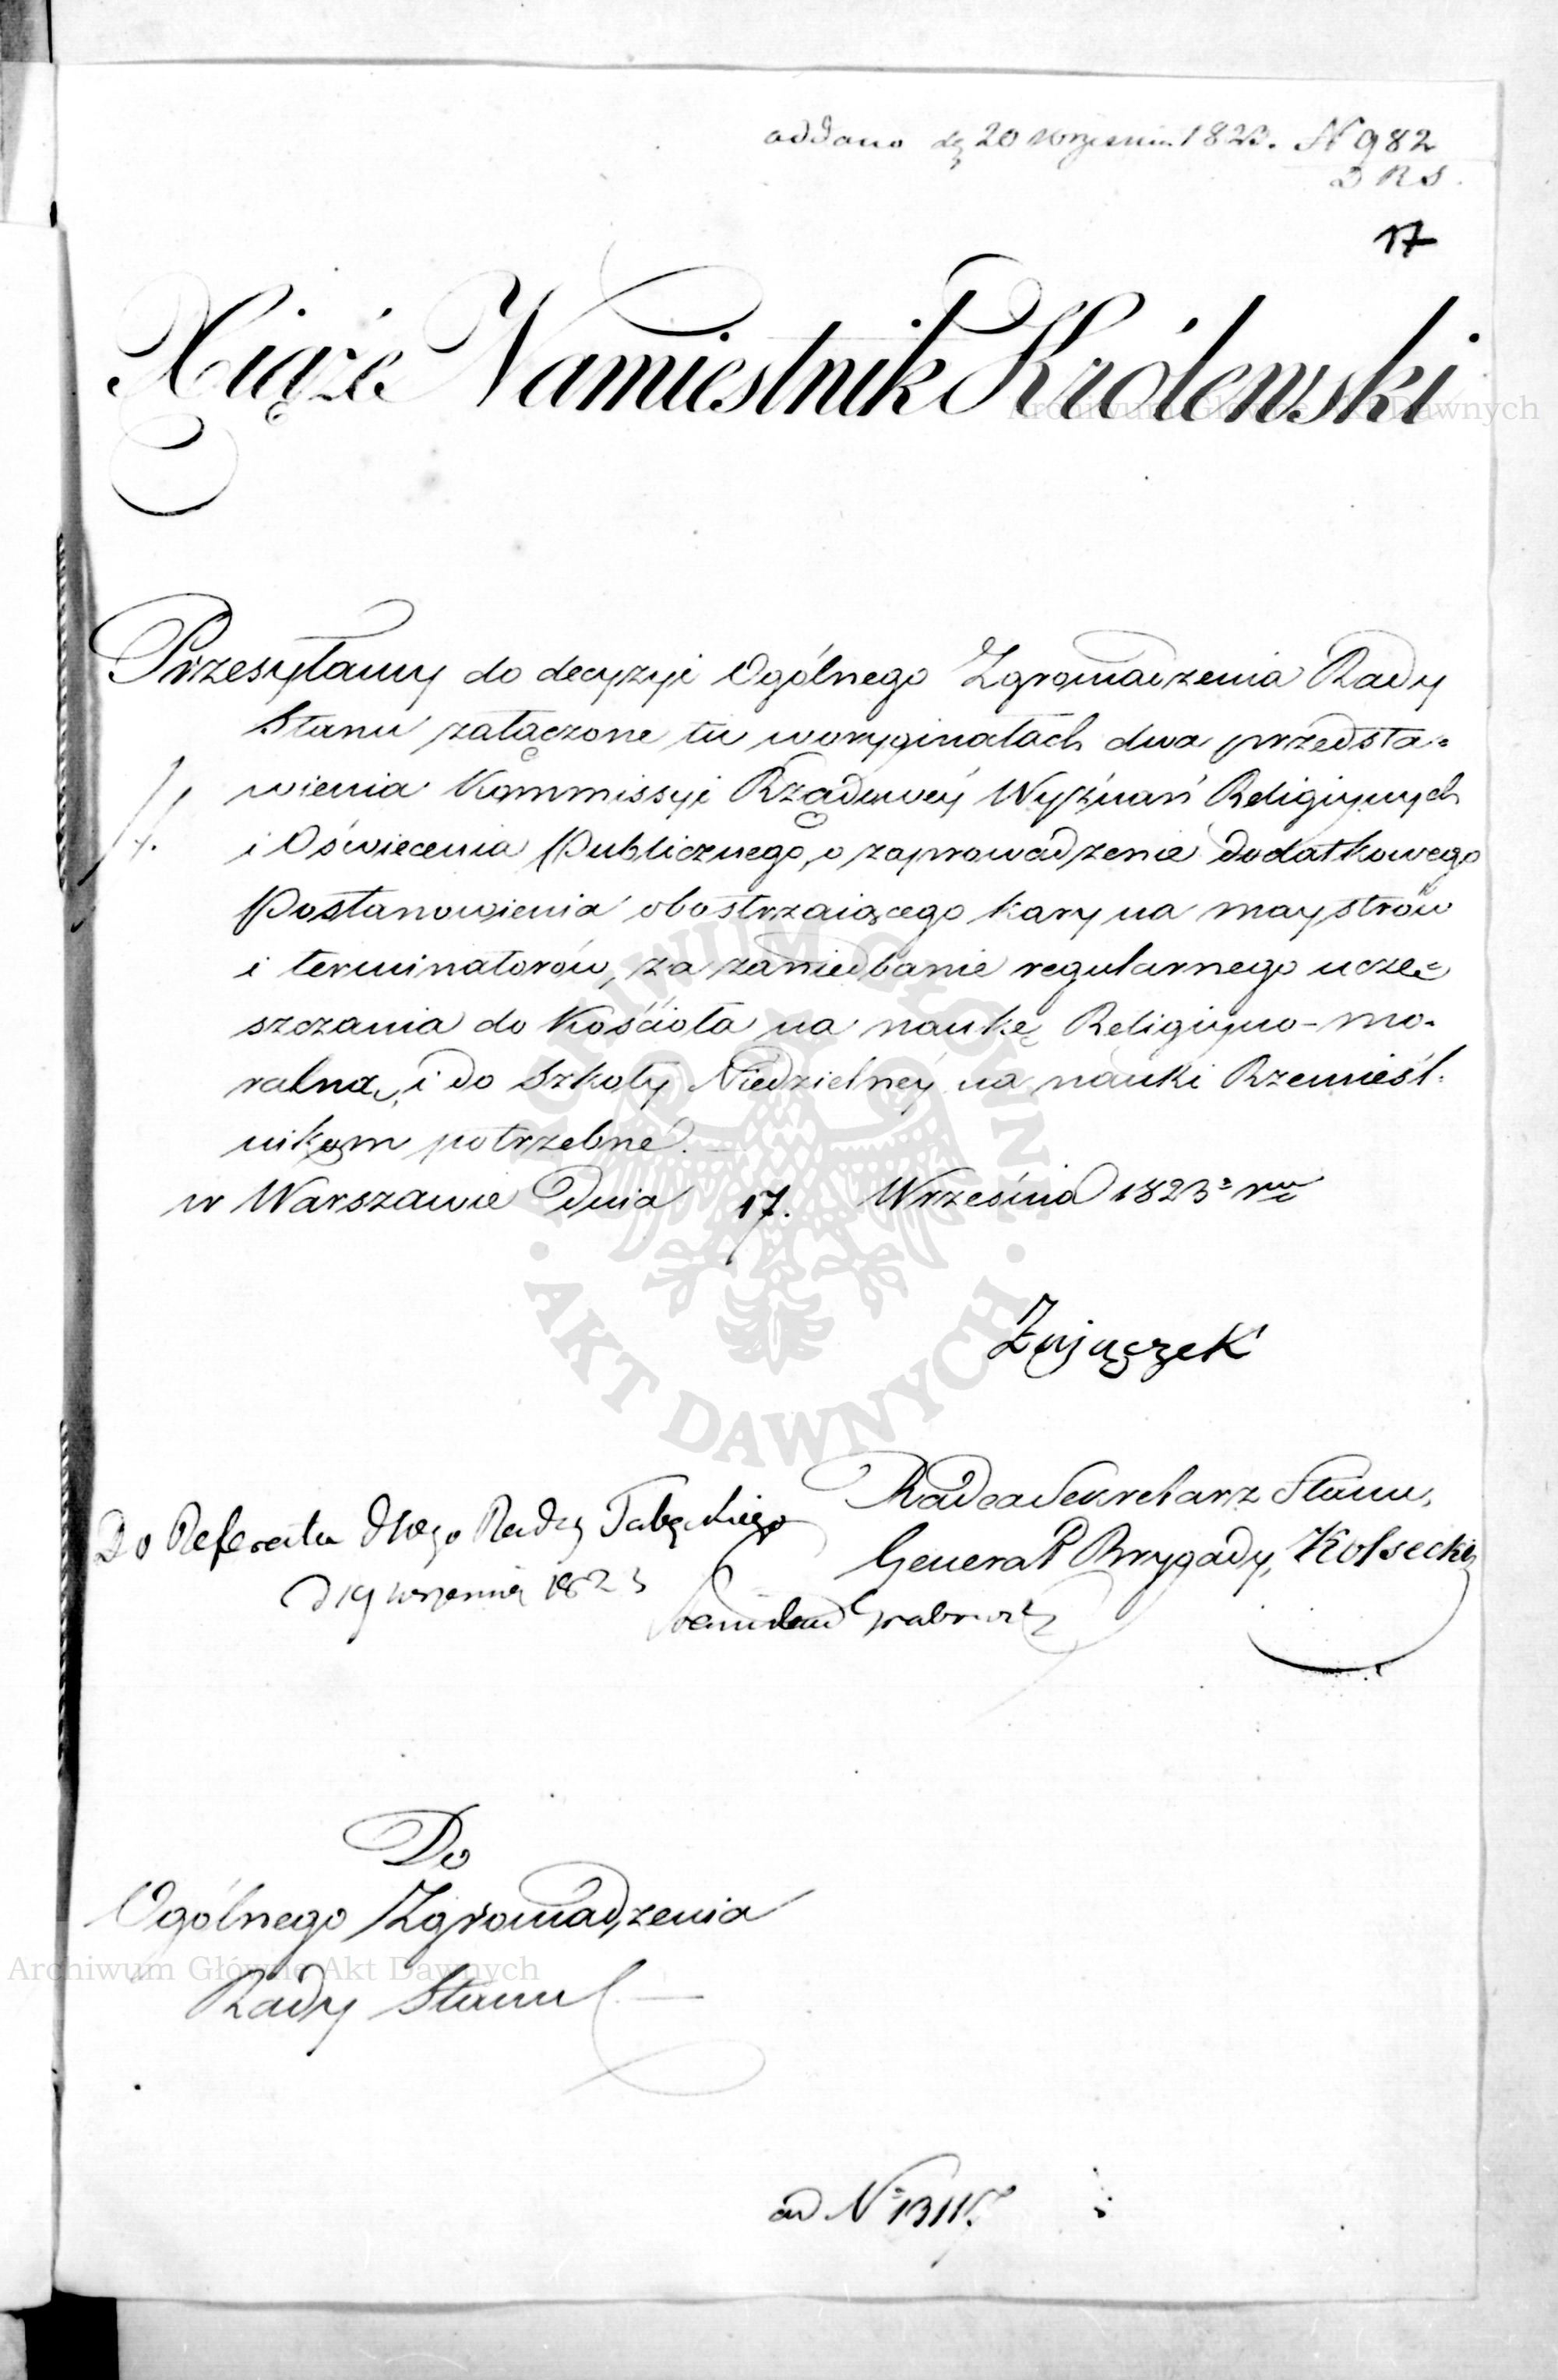 oddano d. 20 września 1823. N 982
D R S.
17
Xiąże Namiestnik Królewski
Przesyłamy do decyzyi Ogólnego Zgromadzenia Rady
Stanu załączone tu w oryginałach dwa przedsta=
wienia Kommissyi Rządowéy Wyznań Religiynych
i Oświecenia Publicznego, o zaprowadzenie dodatkowego
Postanowienia obostrzaiącego kary na maystrów
i terminatorów, za zaniedbanie regularnego uczę=
szczania do Kościoła na naukę Religiyno-mo-
ralną, i do Szkoły Niedzielnéy na nauki Rzemieśl-
nikom potrzebne.
w Warszawie Dnia 17. Września 1823 r
Zajączek
Radca Sekretarz Stanu,
Generał Brygady, Kossecki
Do Referatu Radzy Tabęckiego
d 19 września 1823
Stanisław Grabowski
Do
Ogólnego Zgromadzenia
Rady Stanu
ad N 13115.
Archiwum Główne Akt Dawnych
Archiwum Główne Akt Dawnych
ARCHIWUM GŁÓWNE
· AKT DAWNYCH ·